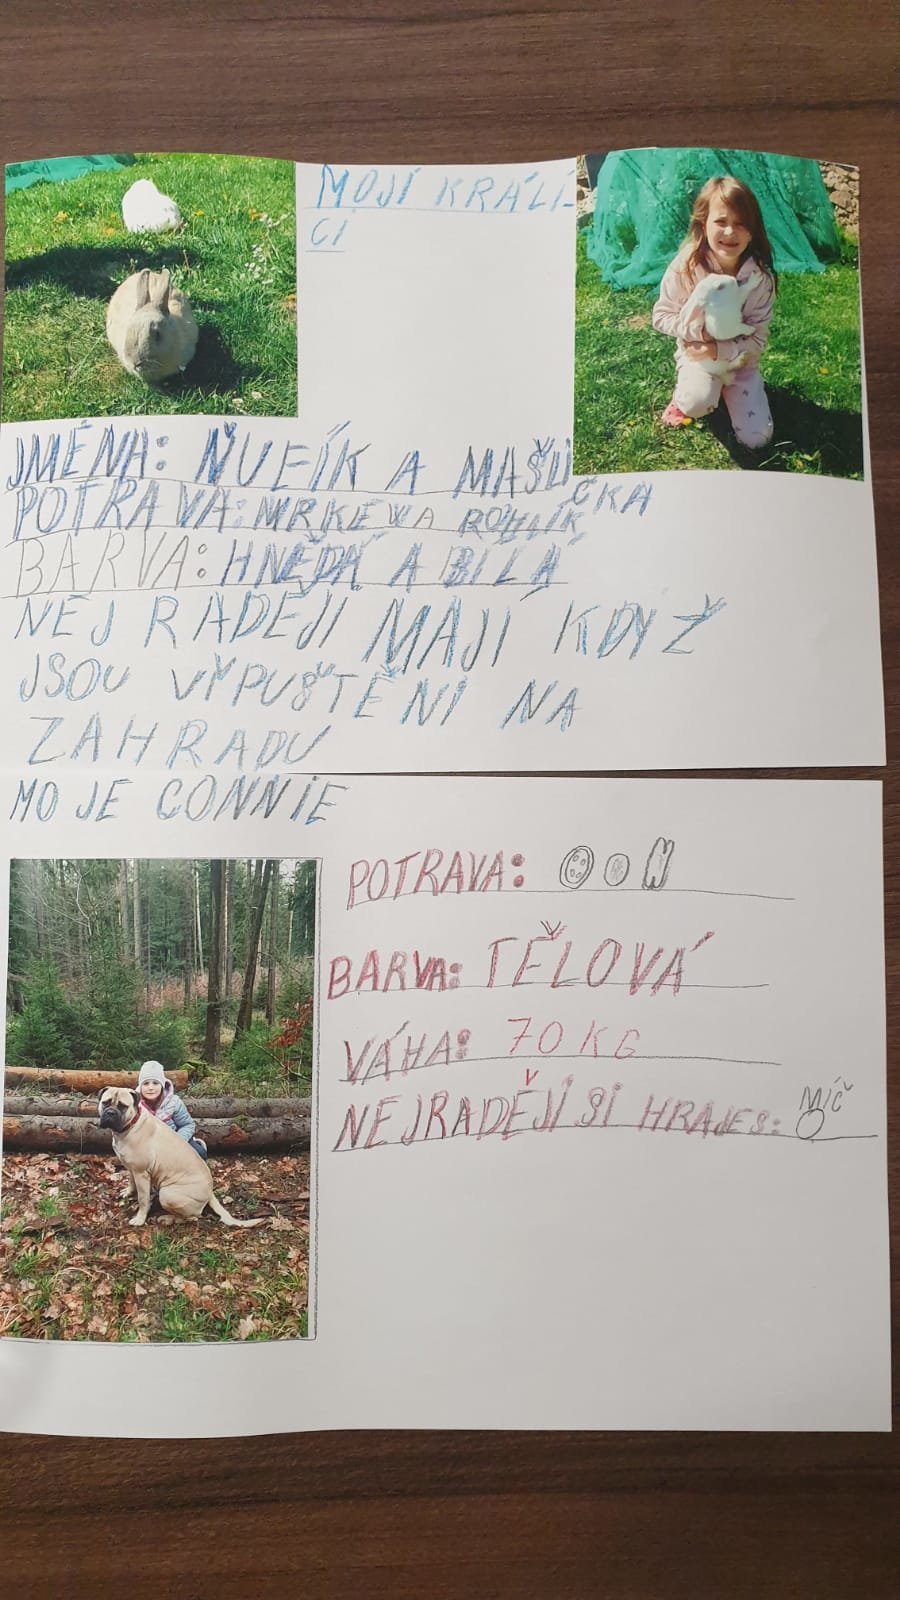 MOJÍ KRÁLÍ-
CI
JMÉNA: ŇUFÍK A MAŠLI
ČKA
POTRAVA: MRKEWA ROHLÍK
BARVA: HNĚDÁ A BÍLÁ
NEJ RADĚJI MAJÍ KDYŽ
JSOU VYPUŠTĚNI NA
ZAHRADU
MOJE CONNIE
POTRAVA:
BARVA: TĚLOVÁ
VÁHA: 70 KG
NEJRADĚJÍ SI HRAJES: MÍČ